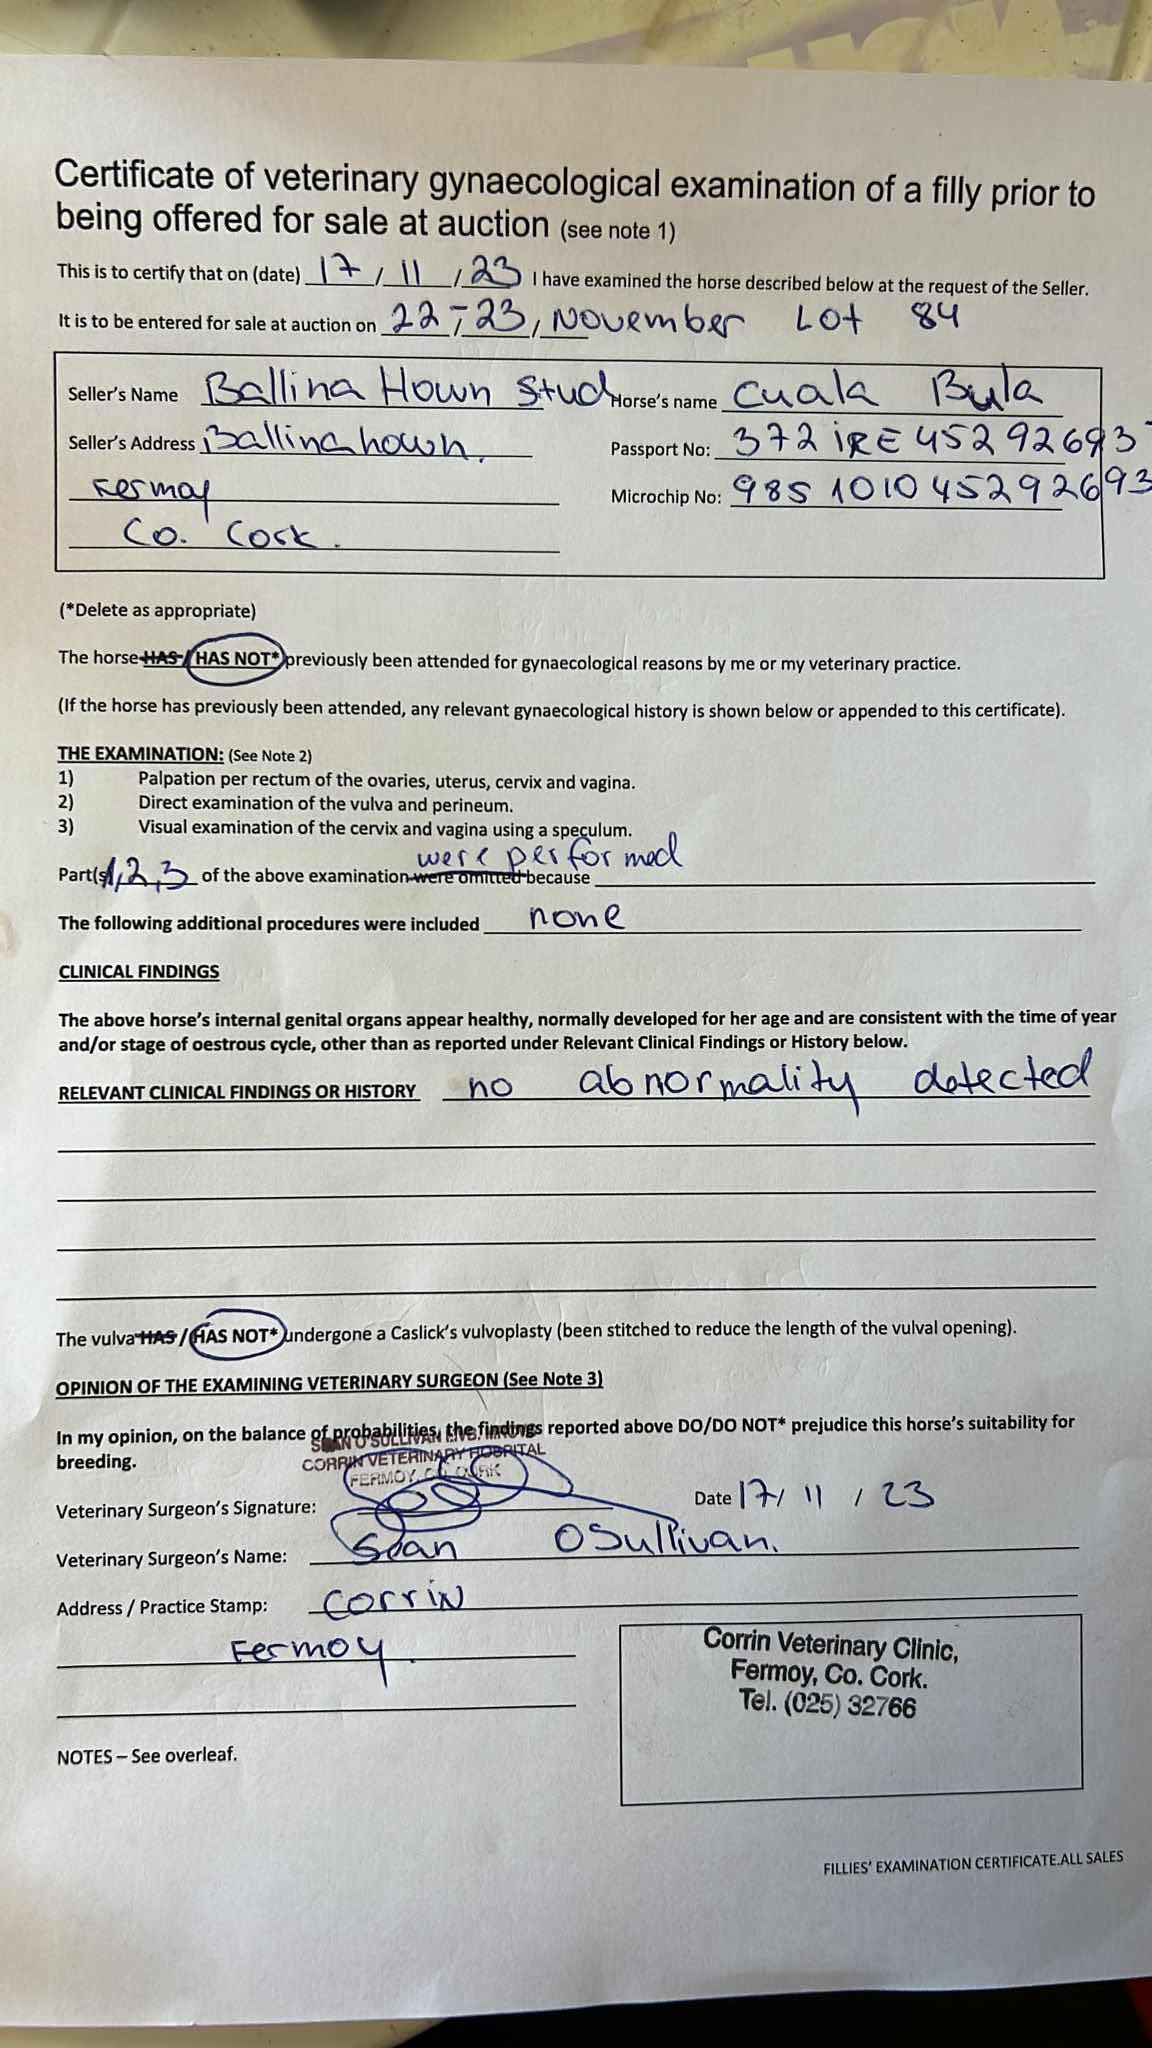 Certificate of veterinary gynaecological examination of a filly prior to
being offered for sale at auction (see note 1)
This is to certify that on (date) 17 / 11 / 23 I have examined the horse described below at the request of the Seller.
It is to be entered for sale at auction on 22-23, November Lot 84
Seller's Name Ballina Hown Stud Horse's name Cuala Bula
Seller's Address Ballinahown. Passport No: 372 IRE 45292693
Fermoy Microchip No: 985101045292693
Co. Cork.
(*Delete as appropriate)
The horse HAS / HAS NOT* previously been attended for gynaecological reasons by me or my veterinary practice.
(If the horse has previously been attended, any relevant gynaecological history is shown below or appended to this certificate).
THE EXAMINATION: (See Note 2)
1) Palpation per rectum of the ovaries, uterus, cervix and vagina.
2) Direct examination of the vulva and perineum.
3) Visual examination of the cervix and vagina using a speculum.
were performed
Part(s) 1,2,3 of the above examination were omitted because
The following additional procedures were included none
CLINICAL FINDINGS
The above horse's internal genital organs appear healthy, normally developed for her age and are consistent with the time of year
and/or stage of oestrous cycle, other than as reported under Relevant Clinical Findings or History below.
RELEVANT CLINICAL FINDINGS OR HISTORY no abnormality detected
The vulva HAS / HAS NOT* undergone a Caslick's vulvoplasty (been stitched to reduce the length of the vulval opening).
OPINION OF THE EXAMINING VETERINARY SURGEON (See Note 3)
In my opinion, on the balance of probabilities, the findings reported above DO/DO NOT* prejudice this horse's suitability for
breeding.
SEAN O'SULLIVAN
CORRIN VETERINARY HOSPITAL
FERMOY, CO. CORK
Veterinary Surgeon's Signature: Date 17/ 11 / 23
Veterinary Surgeon's Name: Sean OSullivan.
Address / Practice Stamp: Corrin
Fermoy.
Corrin Veterinary Clinic,
Fermoy, Co. Cork.
Tel. (025) 32766
NOTES – See overleaf.
FILLIES' EXAMINATION CERTIFICATE.ALL SALES